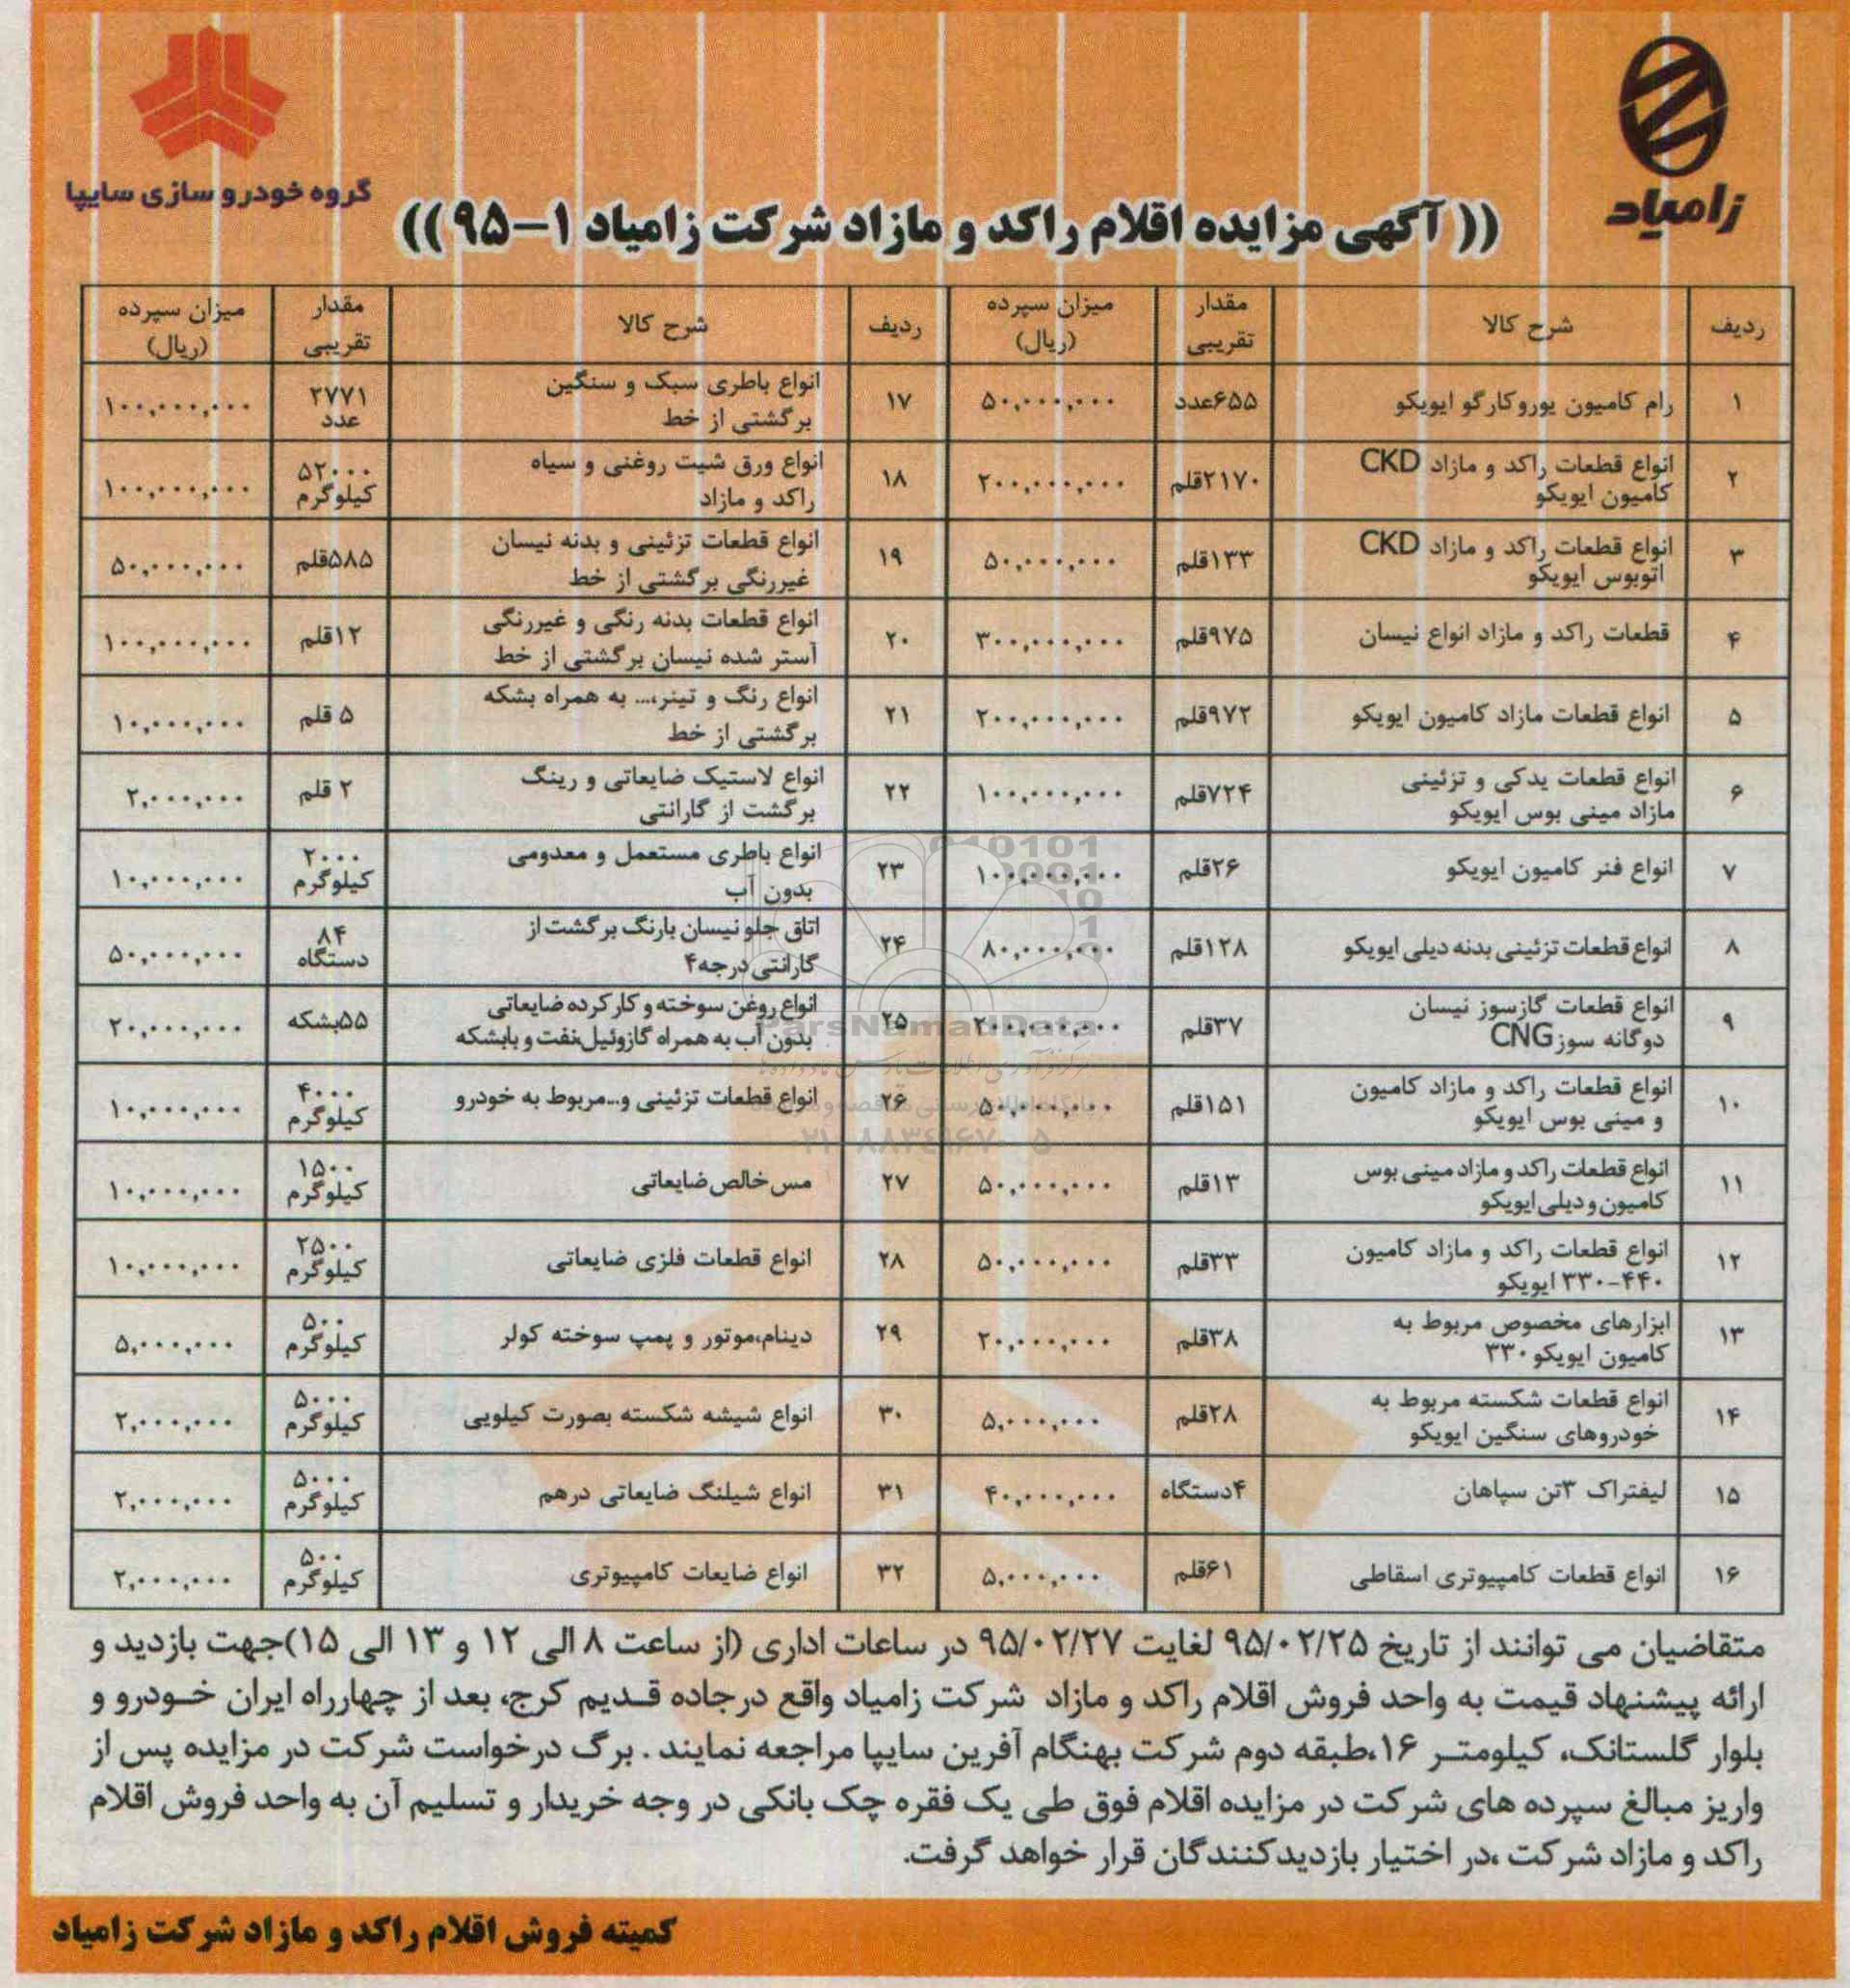 زامیاد
گروه خودروسازی سایپا
(( آگهی مزایده اقلام راکد و مازاد شرکت زامیاد ۱-۹۵ ))
ردیف | شرح کالا | مقدار تقریبی | میزان سپرده (ریال)
۱ | رام کامیون یوروکارگو ایویکو | ۶۵۵عدد | ۵۰,۰۰۰,۰۰۰
۲ | انواع قطعات راکد و مازاد CKD کامیون ایویکو | ۲۱۷۰قلم | ۲۰۰,۰۰۰,۰۰۰
۳ | انواع قطعات راکد و مازاد CKD اتوبوس ایویکو | ۱۳۳قلم | ۵۰,۰۰۰,۰۰۰
۴ | قطعات راکد و مازاد انواع نیسان | ۹۷۵قلم | ۳۰۰,۰۰۰,۰۰۰
۵ | انواع قطعات مازاد کامیون ایویکو | ۹۷۲قلم | ۲۰۰,۰۰۰,۰۰۰
۶ | انواع قطعات یدکی و تزئینی مازاد مینی بوس ایویکو | ۷۲۴قلم | ۱۰۰,۰۰۰,۰۰۰
۷ | انواع فنر کامیون ایویکو | ۲۶قلم | ۱۰۰,۰۰۰,۰۰۰
۸ | انواع قطعات تزئینی بدنه دیلی ایویکو | ۱۲۸قلم | ۸۰,۰۰۰,۰۰۰
۹ | انواع قطعات گازسوز نیسان دوگانه سوز CNG | ۳۷قلم | ۲۰۰,۰۰۰,۰۰۰
۱۰ | انواع قطعات راکد و مازاد کامیون و مینی بوس ایویکو | ۱۵۱قلم | ۵۰,۰۰۰,۰۰۰
۱۱ | انواع قطعات راکد و مازاد مینی بوس کامیون و دیلی ایویکو | ۱۳قلم | ۵۰,۰۰۰,۰۰۰
۱۲ | انواع قطعات راکد و مازاد کامیون ۴۴۰-۳۳۰ ایویکو | ۳۳قلم | ۵۰,۰۰۰,۰۰۰
۱۳ | ابزارهای مخصوص مربوط به کامیون ایویکو ۳۳۰ | ۳۸قلم | ۲۰,۰۰۰,۰۰۰
۱۴ | انواع قطعات شکسته مربوط به خودروهای سنگین ایویکو | ۲۸قلم | ۵,۰۰۰,۰۰۰
۱۵ | لیفتراک ۳تن سپاهان | ۴دستگاه | ۴۰,۰۰۰,۰۰۰
۱۶ | انواع قطعات کامپیوتری اسقاطی | ۶۱قلم | ۵,۰۰۰,۰۰۰
ردیف | شرح کالا | مقدار تقریبی | میزان سپرده (ریال)
۱۷ | انواع باطری سبک و سنگین برگشتی از خط | ۲۷۷۱ عدد | ۱۰۰,۰۰۰,۰۰۰
۱۸ | انواع ورق شیت روغنی و سیاه راکد و مازاد | ۵۲۰۰۰ کیلوگرم | ۱۰۰,۰۰۰,۰۰۰
۱۹ | انواع قطعات تزئینی و بدنه نیسان غیررنگی برگشتی از خط | ۵۸۵قلم | ۵۰,۰۰۰,۰۰۰
۲۰ | انواع قطعات بدنه رنگی و غیررنگی آستر شده نیسان برگشتی از خط | ۱۲قلم | ۱۰۰,۰۰۰,۰۰۰
۲۱ | انواع رنگ و تینر،... به همراه بشکه برگشتی از خط | ۵ قلم | ۱۰,۰۰۰,۰۰۰
۲۲ | انواع لاستیک ضایعاتی و رینگ برگشت از گارانتی | ۲ قلم | ۲,۰۰۰,۰۰۰
۲۳ | انواع باطری مستعمل و معدومی بدون آب | ۲۰۰۰ کیلوگرم | ۱۰,۰۰۰,۰۰۰
۲۴ | اتاق جلو نیسان بارنگ برگشت از گارانتی درجه۴ | ۸۴ دستگاه | ۵۰,۰۰۰,۰۰۰
۲۵ | انواع روغن سوخته و کارکرده ضایعاتی بدون آب به همراه گازوئیل،نفت و بابشکه | ۵۵بشکه | ۲۰,۰۰۰,۰۰۰
۲۶ | انواع قطعات تزئینی و...مربوط به خودرو | ۴۰۰۰ کیلوگرم | ۱۰,۰۰۰,۰۰۰
۲۷ | مس خالص ضایعاتی | ۱۵۰۰ کیلوگرم | ۱۰,۰۰۰,۰۰۰
۲۸ | انواع قطعات فلزی ضایعاتی | ۲۵۰۰ کیلوگرم | ۱۰,۰۰۰,۰۰۰
۲۹ | دینام،موتور و پمپ سوخته کولر | ۵۰۰ کیلوگرم | ۵,۰۰۰,۰۰۰
۳۰ | انواع شیشه شکسته بصورت کیلویی | ۵۰۰۰ کیلوگرم | ۲,۰۰۰,۰۰۰
۳۱ | انواع شیلنگ ضایعاتی درهم | ۵۰۰۰ کیلوگرم | ۲,۰۰۰,۰۰۰
۳۲ | انواع ضایعات کامپیوتری | ۵۰۰ کیلوگرم | ۲,۰۰۰,۰۰۰
ParsNamadData
متقاضیان می توانند از تاریخ ۹۵/۰۲/۲۵ لغایت ۹۵/۰۲/۲۷ در ساعات اداری (از ساعت ۸ الی ۱۲ و ۱۳ الی ۱۵)جهت بازدید و
ارائه پیشنهاد قیمت به واحد فروش اقلام راکد و مازاد شرکت زامیاد واقع درجاده قدیم کرج، بعد از چهارراه ایران خودرو و
بلوار گلستانک، کیلومتر ۱۶،طبقه دوم شرکت بهنگام آفرین سایپا مراجعه نمایند . برگ درخواست شرکت در مزایده پس از
واریز مبالغ سپرده های شرکت در مزایده اقلام فوق طی یک فقره چک بانکی در وجه خریدار و تسلیم آن به واحد فروش اقلام
راکد و مازاد شرکت ،در اختیار بازدیدکنندگان قرار خواهد گرفت.
کمیته فروش اقلام راکد و مازاد شرکت زامیاد